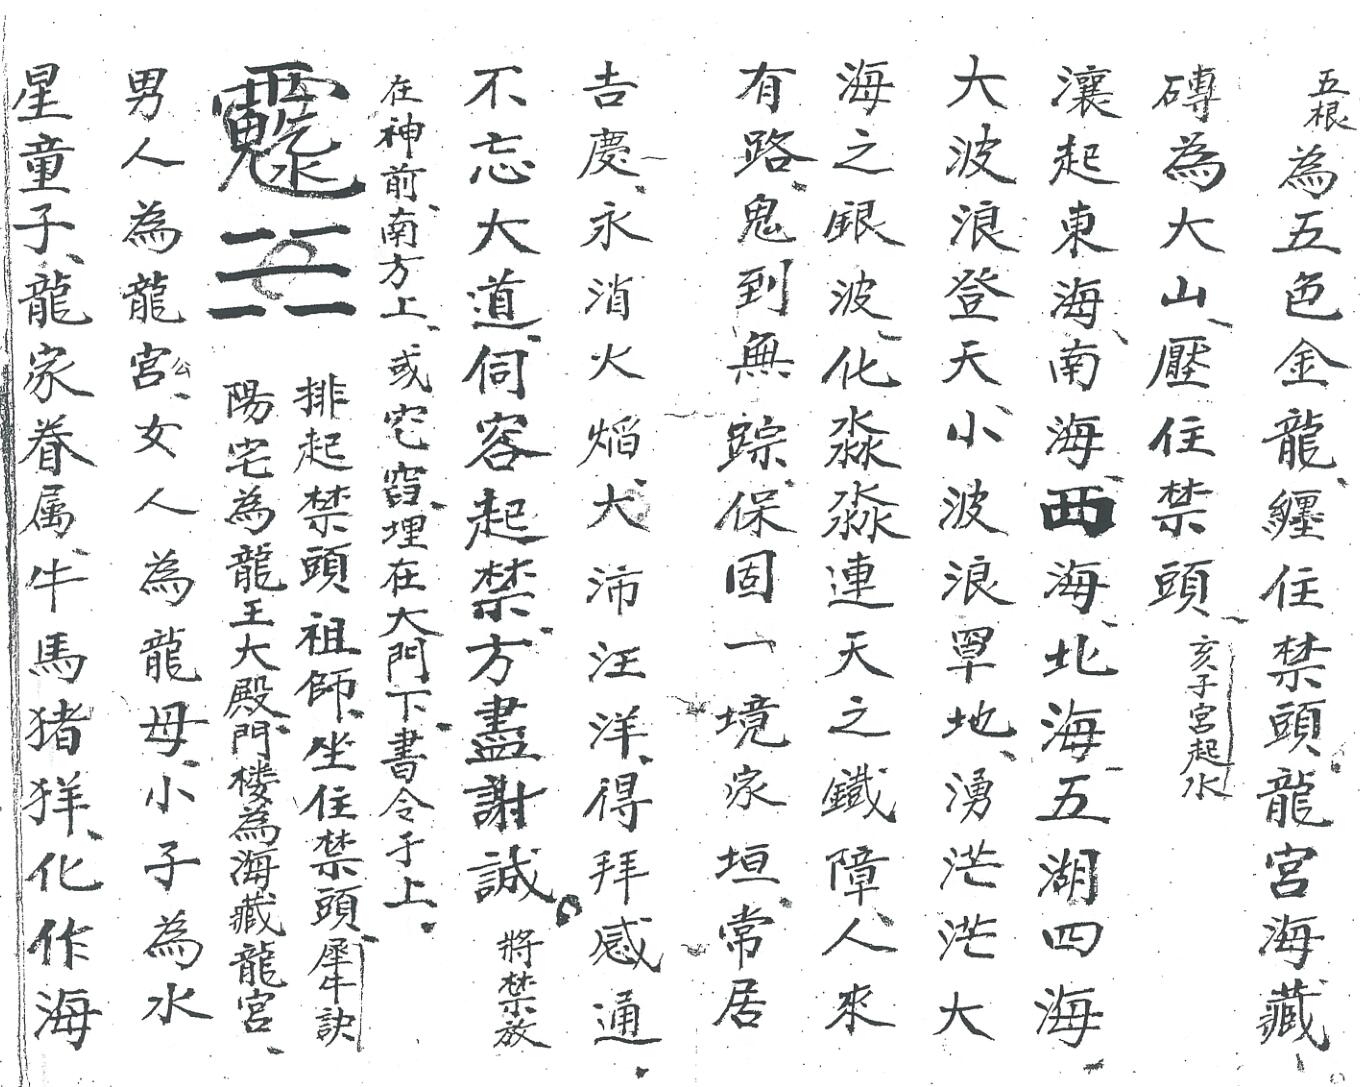 五根為五色金龍纏住禁頭龍宮海藏
磚為大山壓住禁頭 亥子宮起水
瀼起東海南海西海北海五湖四海
大波浪登天小波浪罩地湧茫茫大
海之銀波化淼淼連天之鐵障人來
有路鬼到無踪保固一境家垣常居
吉慶永消火焰大沛汪洋得拜感通
不忘大道伺容起禁方盡謝誠 將禁放
在神前南方上或宅窟埋在大門下書令于上
排起禁頭祖師坐住禁頭犀牛訣
陽宅為龍王大殿門楼為海藏龍宮
男人為龍宮公女人為龍母小子為水
星童子龍家眷属牛馬猪羊化作海